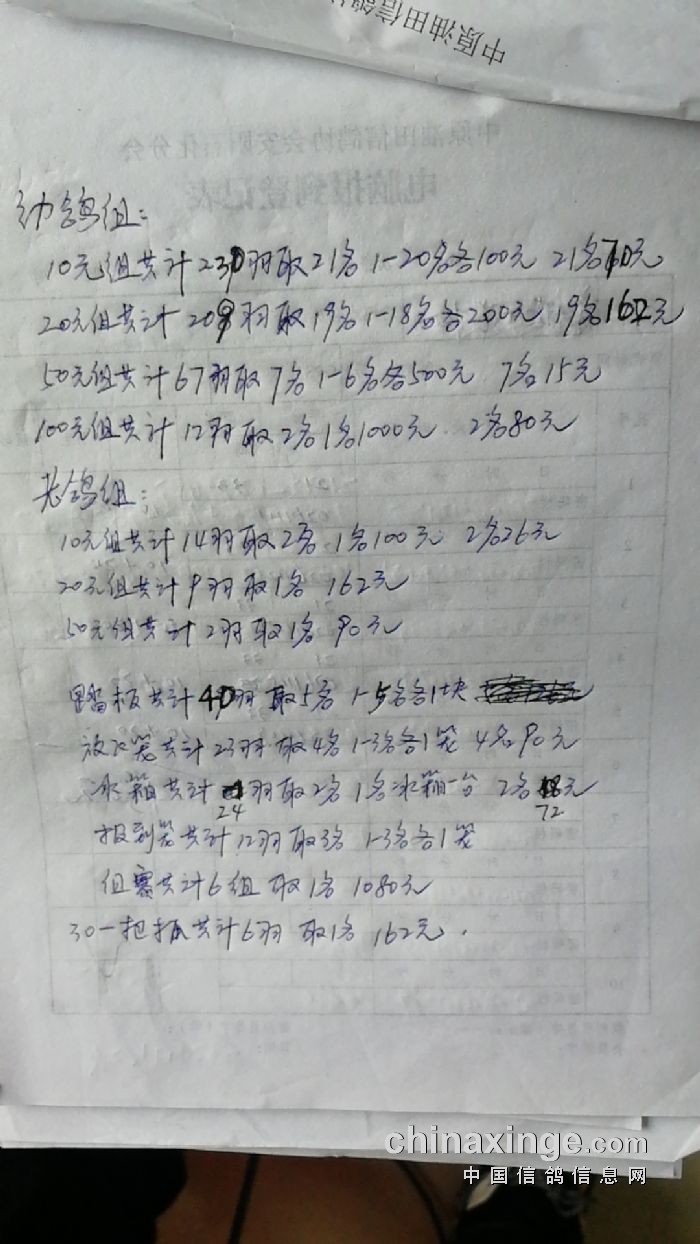 中原油田信鸽
幼鸽组：
10元组共计230羽取21名 1-20名各100元 21名70元
20元组共计209羽取19名 1-18名各200元 19名162元
50元组共计67羽取7名 1-6名各500元 7名15元
100元组共计12羽取2名 1名1000元 2名80元
老鸽组：
10元组共计14羽取2名 1名100元 2名26元
20元组共计9羽取1名 162元
50元组共计2羽取1名 90元
踏板共计40羽取5名 1-5名各1块
放飞笼共计23羽取4名 1-3名各1笼 4名90元
冰箱共计24羽取2名 1名冰箱一台 2名72元
报到笼共计12羽取3名 1-3名各1笼
组赛共计6组 取1名 1080元
30一把抓共计6羽 取1名 162元.
chinaxinge.com
中国信鸽信息网